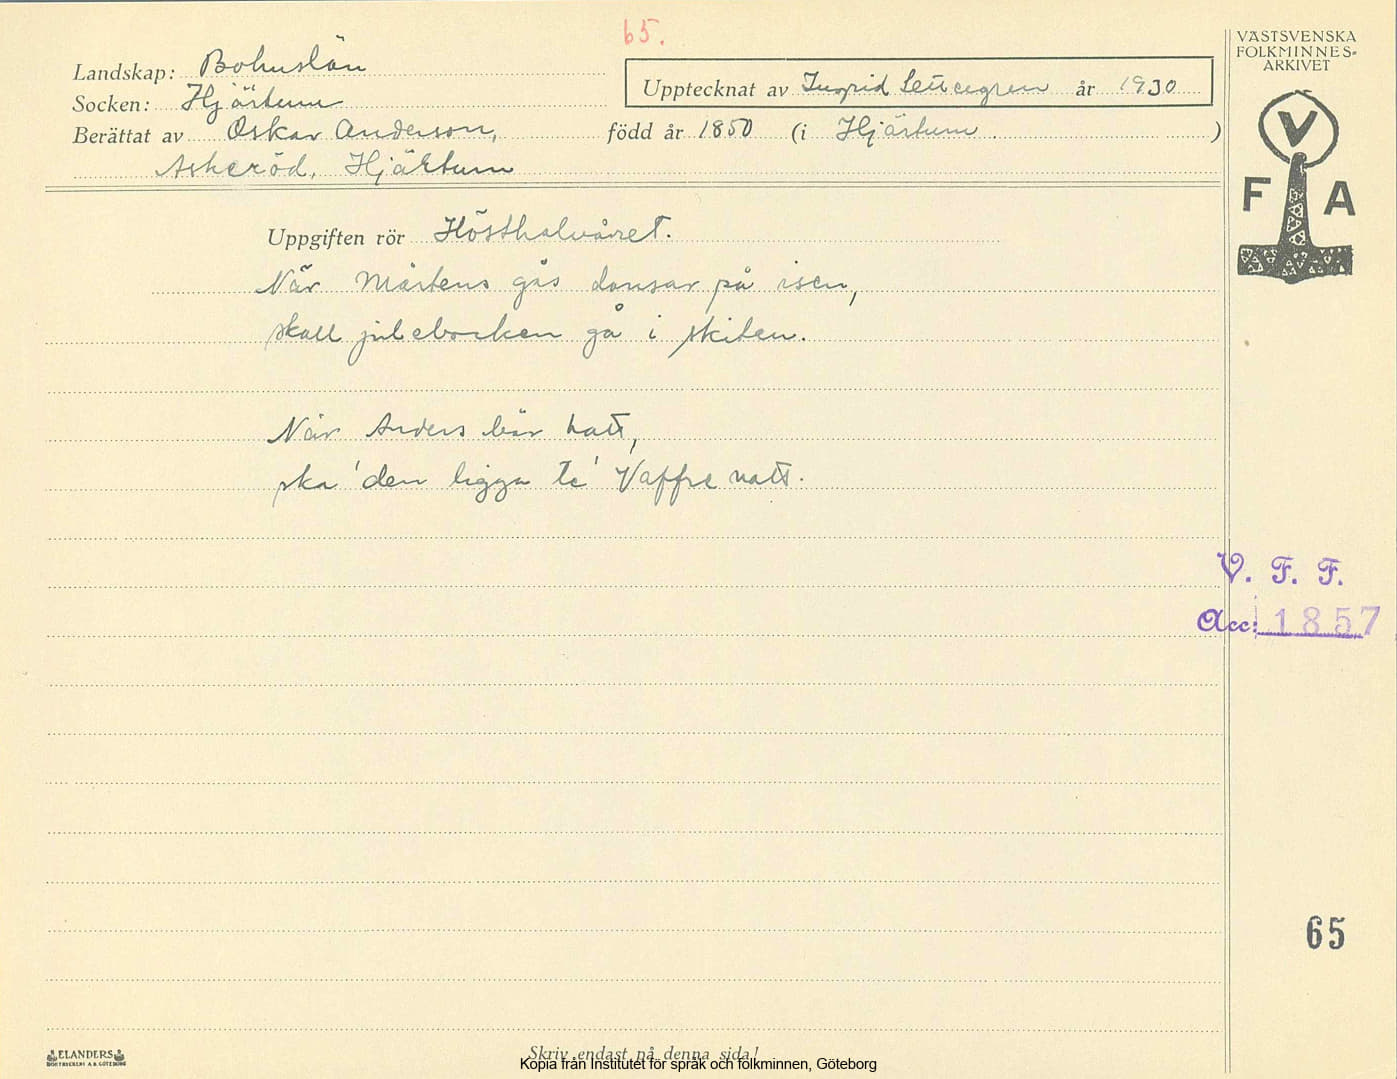 65.
VÄSTSVENSKA
FOLKMINNES-
ARKIVET
Landskap: Bohuslän
Upptecknat av Ingrid år 1930
Socken: Hjärtum
Berättat av Oskar Anderson, född år 1850 (i Hjärtum. )
Askeröd, Hjärtum
V
F A
Uppgiften rör Hösthalvåret.
När Mårtens gås dansar på isen,
skall julebocken gå i skiten.
När Anders bär hatt,
ska' den ligga te' Vaffre natt.
V. F. F.
Acc: 1857
65
ELANDERS
BOKTRYCKERI A.B. GÖTEBORG
Skriv endast på denna sida!
Kopia från Institutet för språk och folkminnen, Göteborg